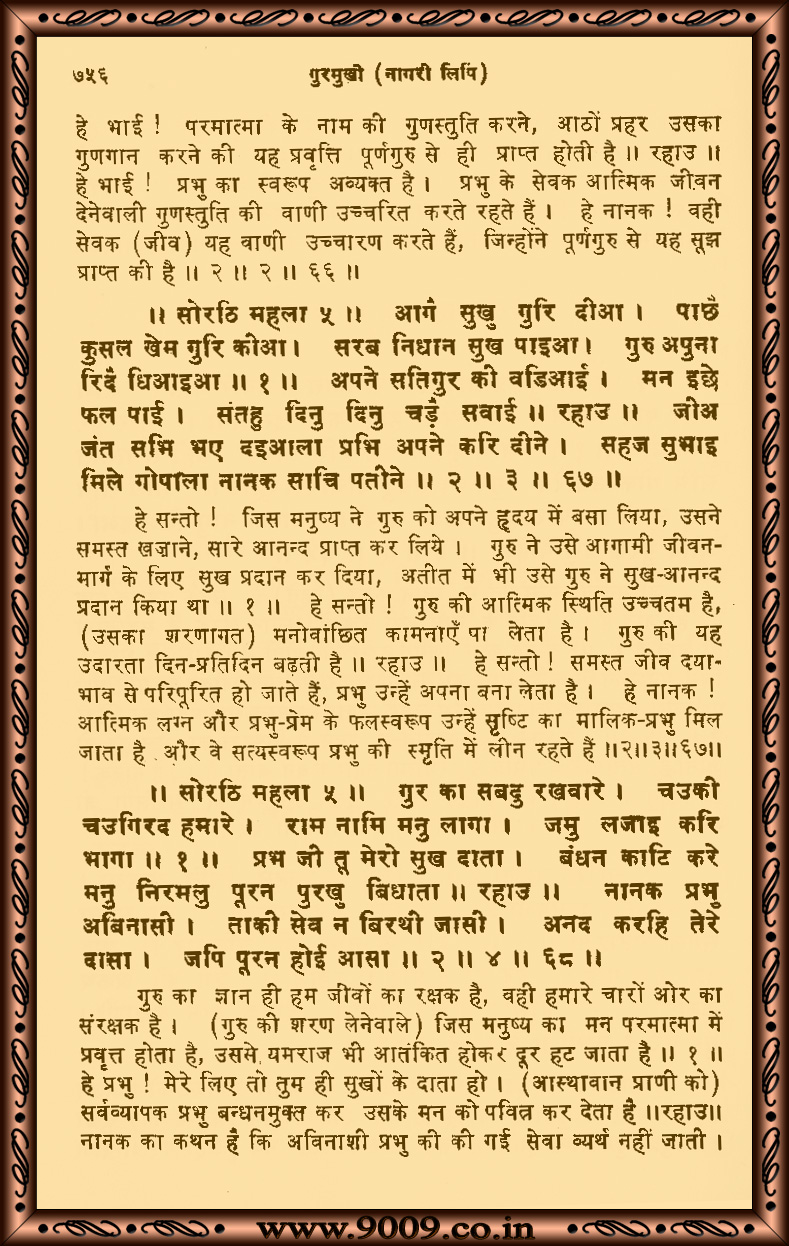 ७५६ गुरमुखी (नागरी लिपि)
हे भाई ! परमात्मा के नाम की गुणस्तुति करने, आठों प्रहर उसका
गुणगान करने की यह प्रवृत्ति पूर्णगुरु से ही प्राप्त होती है ॥ रहाउ ॥
हे भाई ! प्रभु का स्वरूप अव्यक्त है । प्रभु के सेवक आत्मिक जीवन
देनेवाली गुणस्तुति की वाणी उच्चरित करते रहते हैं । हे नानक ! वही
सेवक (जीव) यह वाणी उच्चारण करते हैं, जिन्होंने पूर्णगुरु से यह सूझ
प्राप्त की है ॥ २ ॥ २ ॥ ६६ ॥
॥ सोरठि महला ५ ॥ आगै सुखु गुरि दीआ । पाछै
कुसल खेम गुरि कीआ । सरब निधान सुख पाइआ । गुरु अपुना
रिदै धिआइआ ॥ १ ॥ अपने सतिगुर की वडिआई । मन इछे
फल पाई । संतहु दिनु दिनु चड़ै सवाई ॥ रहाउ ॥ जीअ
जंत सभि भए दइआला प्रभि अपने करि दीने । सहज सुभाइ
मिले गोपाला नानक साचि पतीने ॥ २ ॥ ३ ॥ ६७ ॥
हे सन्तो ! जिस मनुष्य ने गुरु को अपने हृदय में बसा लिया, उसने
समस्त खज़ाने, सारे आनन्द प्राप्त कर लिये । गुरु ने उसे आगामी जीवन-
मार्ग के लिए सुख प्रदान कर दिया, अतीत में भी उसे गुरु ने सुख-आनन्द
प्रदान किया था ॥ १ ॥ हे सन्तो ! गुरु की आत्मिक स्थिति उच्चतम है,
(उसका शरणागत) मनोवांछित कामनाएँ पा लेता है । गुरु की यह
उदारता दिन-प्रतिदिन बढ़ती है ॥ रहाउ ॥ हे सन्तो ! समस्त जीव दया-
भाव से परिपूरित हो जाते हैं, प्रभु उन्हें अपना बना लेता है । हे नानक !
आत्मिक लग्न और प्रभु-प्रेम के फलस्वरूप उन्हें सृष्टि का मालिक-प्रभु मिल
जाता है और वे सत्यस्वरूप प्रभु की स्मृति में लीन रहते हैं ॥२॥३॥६७॥
॥ सोरठि महला ५ ॥ गुर का सबदु रखवारे । चउकी
चउगिरद हमारे । राम नामि मनु लागा । जमु लजाइ करि
भागा ॥ १ ॥ प्रभ जी तू मेरो सुख दाता । बंधन काटि करे
मनु निरमलु पूरन पुरखु बिधाता ॥ रहाउ ॥ नानक प्रभु
अबिनासी । ताकी सेव न बिरथी जासी । अनद करहि तेरे
दासा । जपि पूरन होई आसा ॥ २ ॥ ४ ॥ ६८ ॥
गुरु का ज्ञान ही हम जीवों का रक्षक है, वही हमारे चारों ओर का
संरक्षक है । (गुरु की शरण लेनेवाले) जिस मनुष्य का मन परमात्मा में
प्रवृत्त होता है, उससे यमराज भी आतंकित होकर दूर हट जाता है ॥ १ ॥
हे प्रभु ! मेरे लिए तो तुम ही सुखों के दाता हो । (आस्थावान प्राणी को)
सर्वव्यापक प्रभु बन्धनमुक्त कर उसके मन को पवित्र कर देता है ॥रहाउ॥
नानक का कथन है कि अविनाशी प्रभु की की गई सेवा व्यर्थ नहीं जाती ।
www.9009.co.in